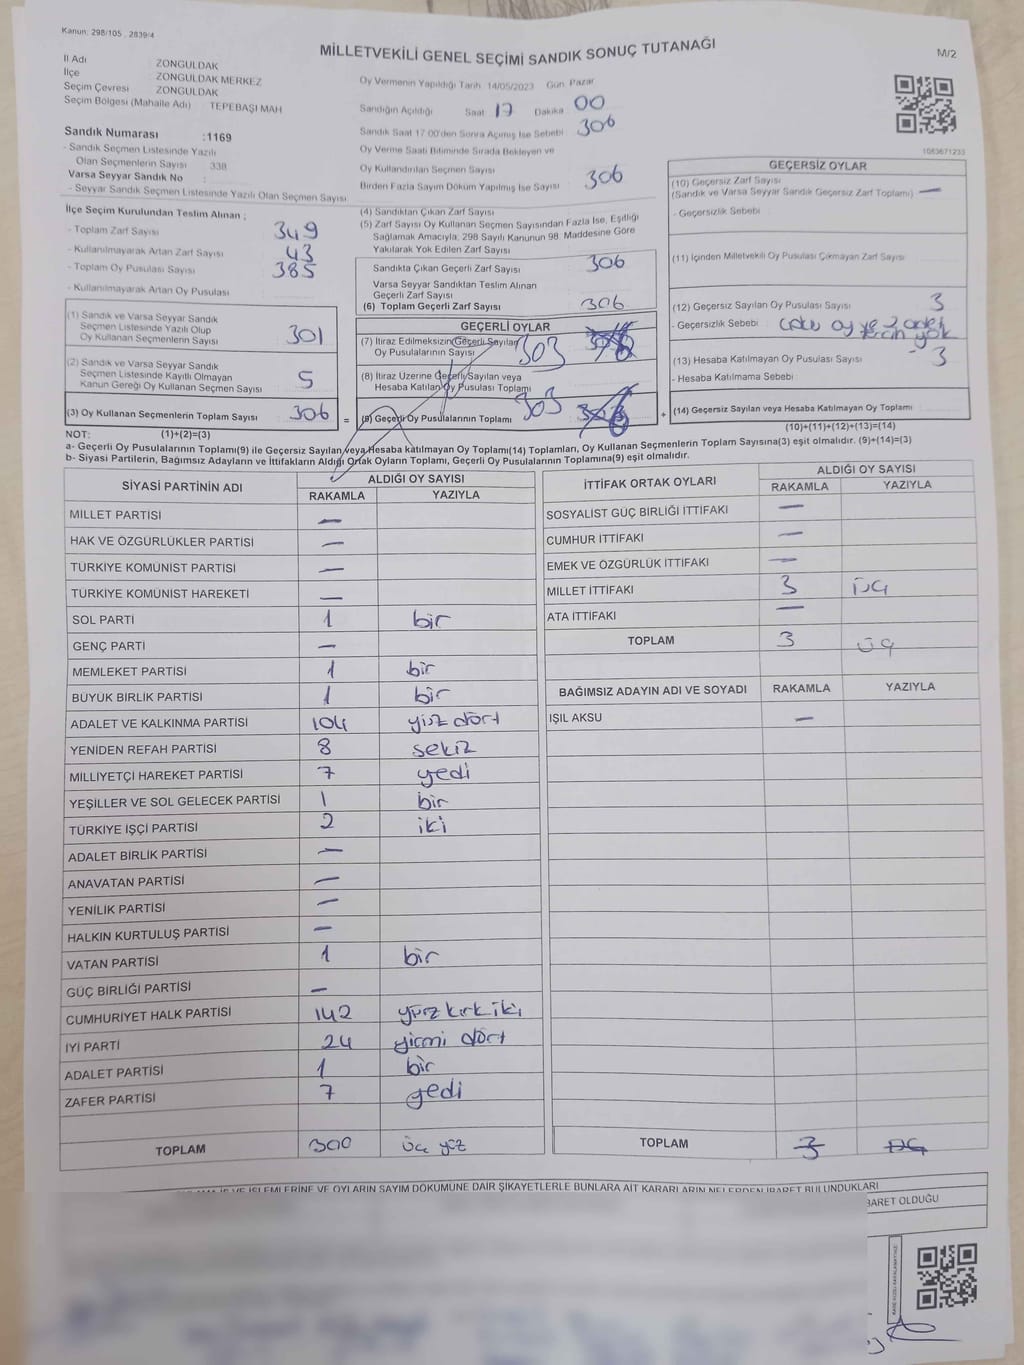 Kanun: 298/105 , 2839/4
MİLLETVEKİLİ GENEL SEÇİMİ SANDIK SONUÇ TUTANAĞI
M/2
İl Adı ZONGULDAK
İlçe ZONGULDAK MERKEZ
Seçim Çevresi ZONGULDAK
Seçim Bölgesi (Mahalle Adı) TEPEBAŞI MAH
Sandık Numarası :1169
- Sandık Seçmen Listesinde Yazılı
Olan Seçmenlerin Sayısı 338
Varsa Seyyar Sandık No :
- Seyyar Sandık Seçmen Listesinde Yazılı Olan Seçmen Sayısı
Oy Vermenin Yapıldığı Tarih 14/05/2023 Gün Pazar
Sandığın Açıldığı Saat 17 Dakika 00
Sandık Saat 17.00'den Sonra Açılmış İse Sebebi 306
Oy Verme Saati Bitiminde Sırada Bekleyen ve
Oy Kullandırılan Seçmen Sayısı 306
Birden Fazla Sayım Döküm Yapılmış İse Sayısı
1083671233
İlçe Seçim Kurulundan Teslim Alınan ;
- Toplam Zarf Sayısı 349
- Kullanılmayarak Artan Zarf Sayısı 43
- Toplam Oy Pusulası Sayısı 385
- Kullanılmayarak Artan Oy Pusulası
(1) Sandık ve Varsa Seyyar Sandık
Seçmen Listesinde Yazılı Olup
Oy Kullanan Seçmenlerin Sayısı 301
(2) Sandık ve Varsa Seyyar Sandık
Seçmen Listesinde Kayıtlı Olmayan
Kanun Gereği Oy Kullanan Seçmen Sayısı 5
(3) Oy Kullanan Seçmenlerin Toplam Sayısı 306 =
(4) Sandıktan Çıkan Zarf Sayısı
(5) Zarf Sayısı Oy Kullanan Seçmen Sayısından Fazla İse, Eşitliği
Sağlamak Amacıyla, 298 Sayılı Kanunun 98. Maddesine Göre
Yakılarak Yok Edilen Zarf Sayısı
Sandıkta Çıkan Geçerli Zarf Sayısı 306
Varsa Seyyar Sandıktan Teslim Alınan
Geçerli Zarf Sayısı
(6) Toplam Geçerli Zarf Sayısı 306
GEÇERLİ OYLAR
(7) İtiraz Edilmeksizin Geçerli Sayılan
Oy Pusulalarının Sayısı 303
(8) İtiraz Üzerine Geçerli Sayılan veya
Hesaba Katılan Oy Pusulası Toplamı
(9) Geçerli Oy Pusulalarının Toplamı 303 +
GEÇERSİZ OYLAR
(10) Geçersiz Zarf Sayısı
(Sandık ve Varsa Seyyar Sandık Geçersiz Zarf Toplamı) —
- Geçersizlik Sebebi
(11) İçinden Milletvekili Oy Pusulası Çıkmayan Zarf Sayısı
(12) Geçersiz Sayılan Oy Pusulası Sayısı 3
- Geçersizlik Sebebi
(13) Hesaba Katılmayan Oy Pusulası Sayısı 3
- Hesaba Katılmama Sebebi
(14) Geçersiz Sayılan veya Hesaba Katılmayan Oy Toplamı
(10)+(11)+(12)+(13)=(14)
NOT: (1)+(2)=(3)
a- Geçerli Oy Pusulalarının Toplamı(9) ile Geçersiz Sayılan veya Hesaba katılmayan Oy Toplamı(14) Toplamları, Oy Kullanan Seçmenlerin Toplam Sayısına(3) eşit olmalıdır. (9)+(14)=(3)
b- Siyasi Partilerin, Bağımsız Adayların ve İttifakların Aldığı Ortak Oyların Toplamı, Geçerli Oy Pusulalarının Toplamına(9) eşit olmalıdır.
SİYASİ PARTİNİN ADI ALDIĞI OY SAYISI
RAKAMLA YAZIYLA
MİLLET PARTİSİ —
HAK VE ÖZGÜRLÜKLER PARTİSİ —
TÜRKİYE KOMÜNİST PARTİSİ —
TÜRKİYE KOMÜNİST HAREKETİ —
SOL PARTİ 1 bir
GENÇ PARTİ —
MEMLEKET PARTİSİ 1 bir
BÜYÜK BİRLİK PARTİSİ 1 bir
ADALET VE KALKINMA PARTİSİ 104 yüz dört
YENİDEN REFAH PARTİSİ 8 sekiz
MİLLİYETÇİ HAREKET PARTİSİ 7 yedi
YEŞİLLER VE SOL GELECEK PARTİSİ 1 bir
TÜRKİYE İŞÇİ PARTİSİ 2 iki
ADALET BİRLİK PARTİSİ —
ANAVATAN PARTİSİ —
YENİLİK PARTİSİ —
HALKIN KURTULUŞ PARTİSİ —
VATAN PARTİSİ 1 bir
GÜÇ BİRLİĞİ PARTİSİ —
CUMHURİYET HALK PARTİSİ 142 yüz kırk iki
İYİ PARTİ 24 yirmi dört
ADALET PARTİSİ 1 bir
ZAFER PARTİSİ 7 yedi
TOPLAM 300 üç yüz
İTTİFAK ORTAK OYLARI ALDIĞI OY SAYISI
RAKAMLA YAZIYLA
SOSYALİST GÜÇ BİRLİĞİ İTTİFAKI —
CUMHUR İTTİFAKI —
EMEK VE ÖZGÜRLÜK İTTİFAKI —
MİLLET İTTİFAKI 3 üç
ATA İTTİFAKI —
TOPLAM 3 üç
BAĞIMSIZ ADAYIN ADI VE SOYADI RAKAMLA YAZIYLA
IŞIL AKSU —
TOPLAM 3 üç
VE İŞLEMLERİNE VE OYLARIN SAYIM DÖKÜMÜNE DAİR ŞİKAYETLERLE BUNLARA AİT KARARLARIN NELERDEN İBARET BULUNDUKLARI
BARET OLDUĞU